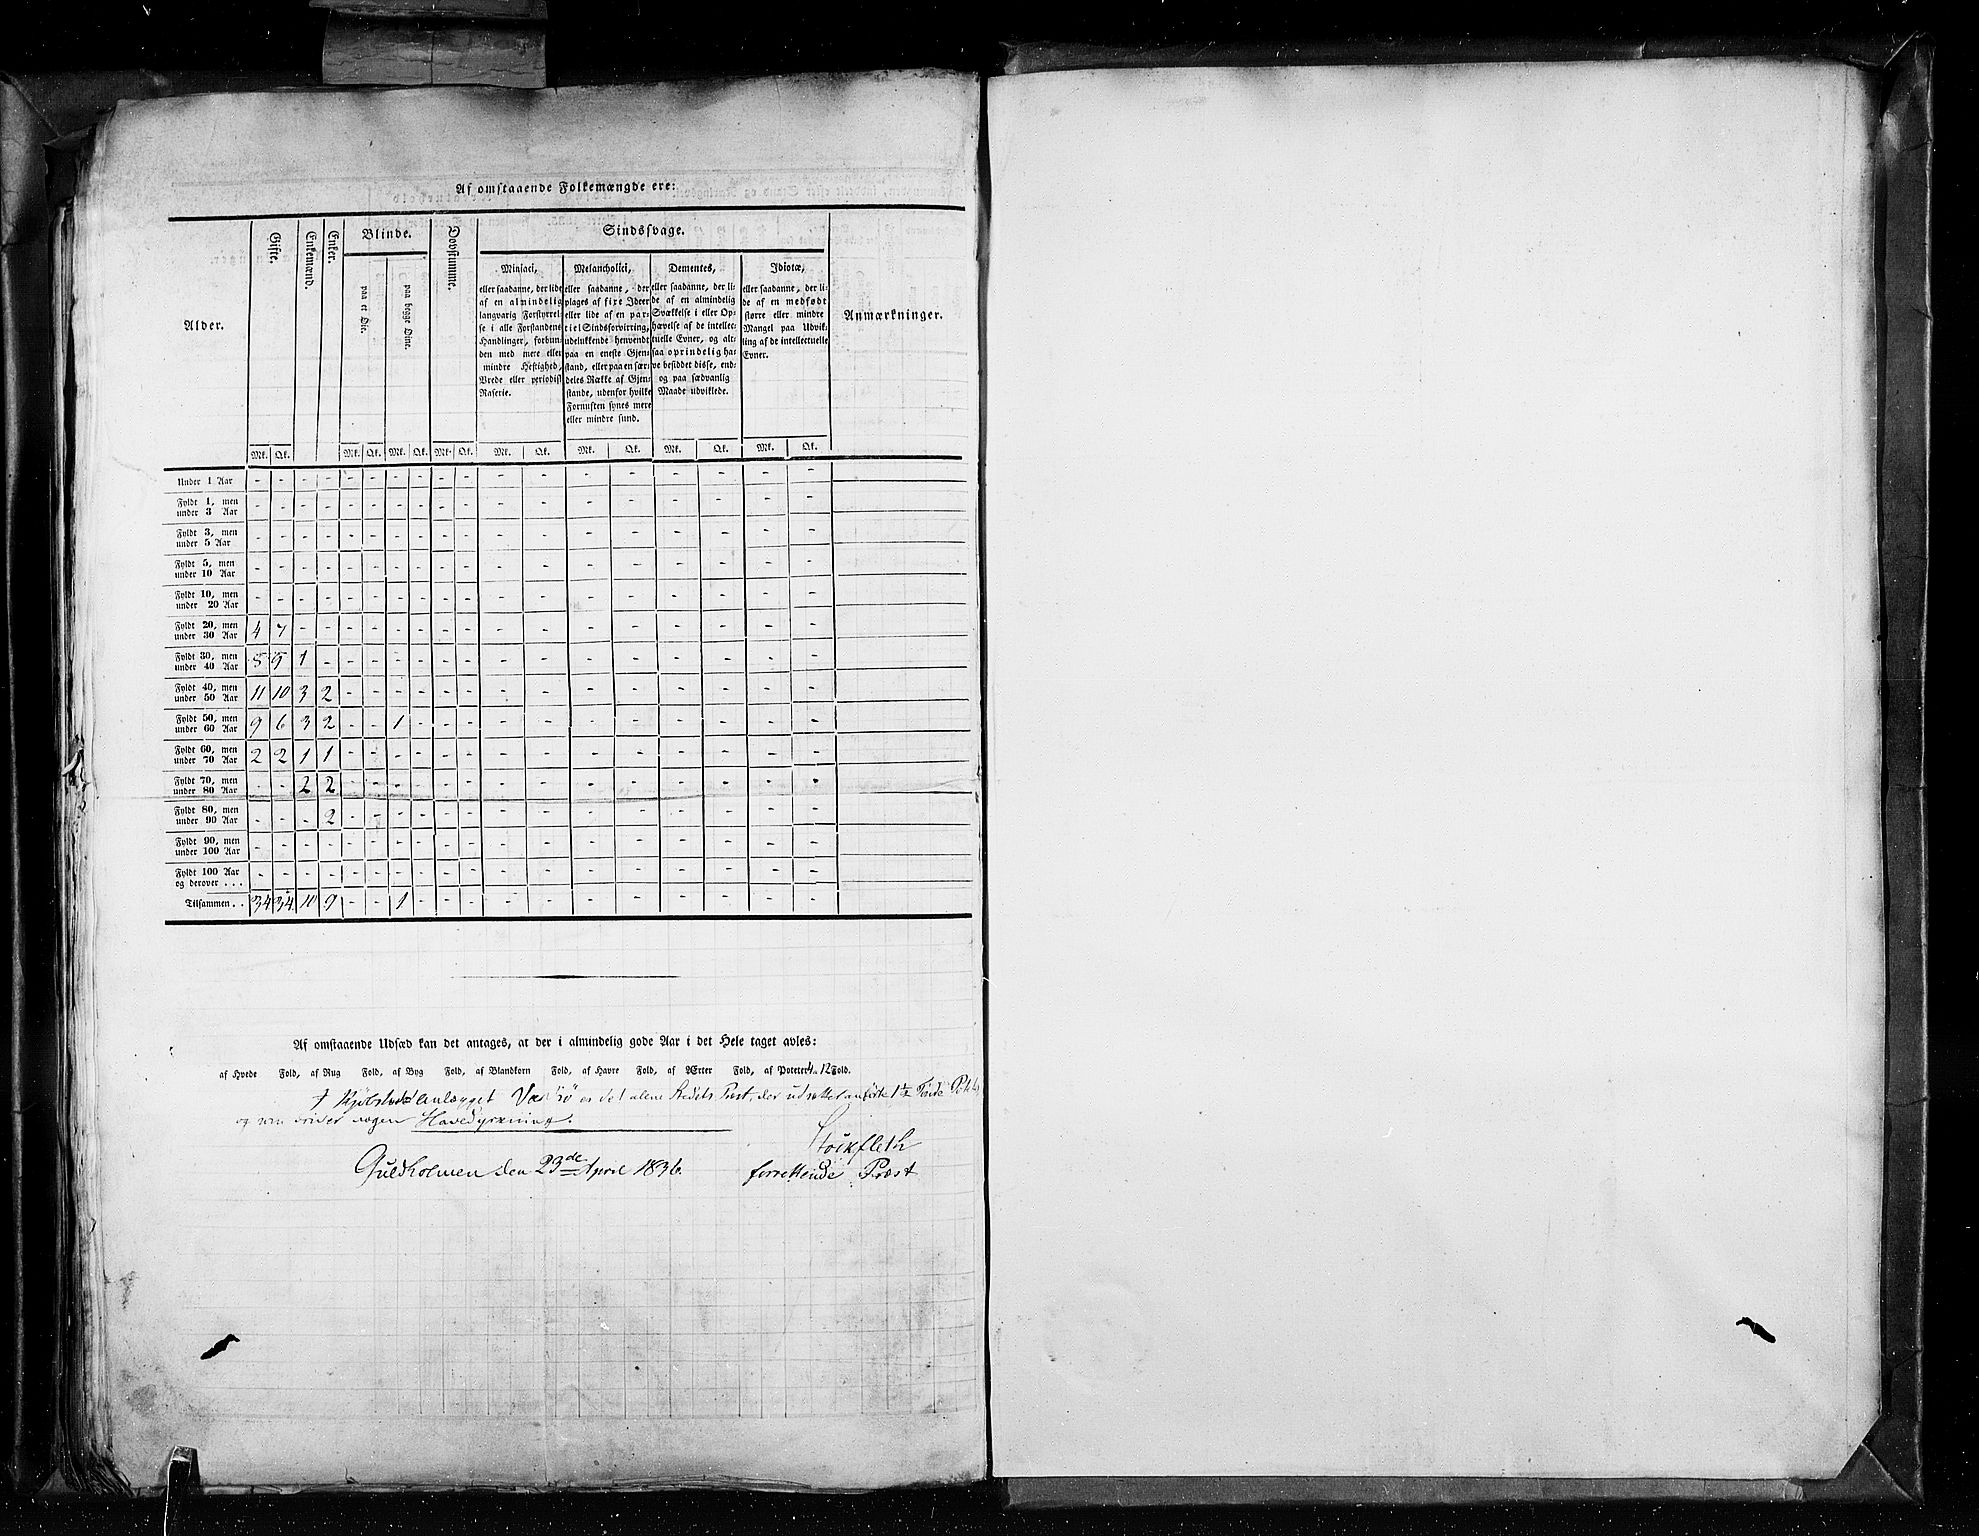 Af omstaaende Folkemængde ere:
Alder. Gifte. Enkemænd. Enker. Blinde. Døvstumme. Sindssvage. Anmærkninger.
paa et Øie. paa begge Øine.
Maniaci, eller saadanne, der lide af en almindelig langvarig Forstyrrelse i alle Forstandens Handlinger, forbunden med mere eller mindre Heftighed, Vrede eller periodisk Raserie.
Melancholici, eller saadanne, der plages af fixe Ideer eller lide af en partiel Sindsforvirring, udelukkende henvendt paa en eneste Gjenstand, eller paa en særdeles Række af Gjenstande, udenfor hvilke Fornuften synes mere eller mindre sund.
Dementes, eller saadanne, der lide af en almindelig Svækkelse i eller Ophævelse af de intellectuelle Evner, og altsaa oprindelig have besiddet disse, endog paa sædvanlig Maade udviklede.
Idiotæ, eller saadanne, der lide af en medfødt større eller mindre Mangel paa Udvikling af de intellectuelle Evner.
Mk. Qk. Mk. Qk. Mk. Qk. Mk. Qk. Mk. Qk. Mk. Qk. Mk. Qk. Mk. Qk.
Under 1 Aar - - - - - - - - - - - - - - - - - -
Fyldt 1, men under 3 Aar - - - - - - - - - - - - - - - - - -
Fyldt 3, men under 5 Aar - - - - - - - - - - - - - - - - - -
Fyldt 5, men under 10 Aar - - - - - - - - - - - - - - - - - -
Fyldt 10, men under 20 Aar - - - - - - - - - - - - - - - - - -
Fyldt 20, men under 30 Aar 4 7 - - - - - - - - - - - - - - - -
Fyldt 30, men under 40 Aar 8 9 1 - - - - - - - - - - - - - - -
Fyldt 40, men under 50 Aar 11 10 3 2 - - - - - - - - - - - - - -
Fyldt 50, men under 60 Aar 9 6 3 2 - - 1 - - - - - - - - - - -
Fyldt 60, men under 70 Aar 2 2 1 1 - - - - - - - - - - - - - -
Fyldt 70, men under 80 Aar - - 2 2 - - - - - - - - - - - - - -
Fyldt 80, men under 90 Aar - - - 2 - - - - - - - - - - - - - -
Fyldt 90, men under 100 Aar - - - - - - - - - - - - - - - - - -
Fyldt 100 Aar og derover . . . - - - - - - - - - - - - - - - - - -
Tilsammen . . 34 34 10 9 - - 1 - - - - - - - - - - -
Af omstaaende Udsæd kan det antages, at der i almindelig gode Aar i det Hele taget avles:
af Hvede Fold, af Rug Fold, af Byg Fold, af Blandkorn Fold, af Havre Fold, af Ærter Fold, af Poteter 4 a 12 Fold.
I Kjøbstadanlægget er det alene Stedets der udsætter 1½ Tønde
og nogen Havedyrkning.
Guldholmen den 23de April 1836. Stockfleth
forrettende Præst